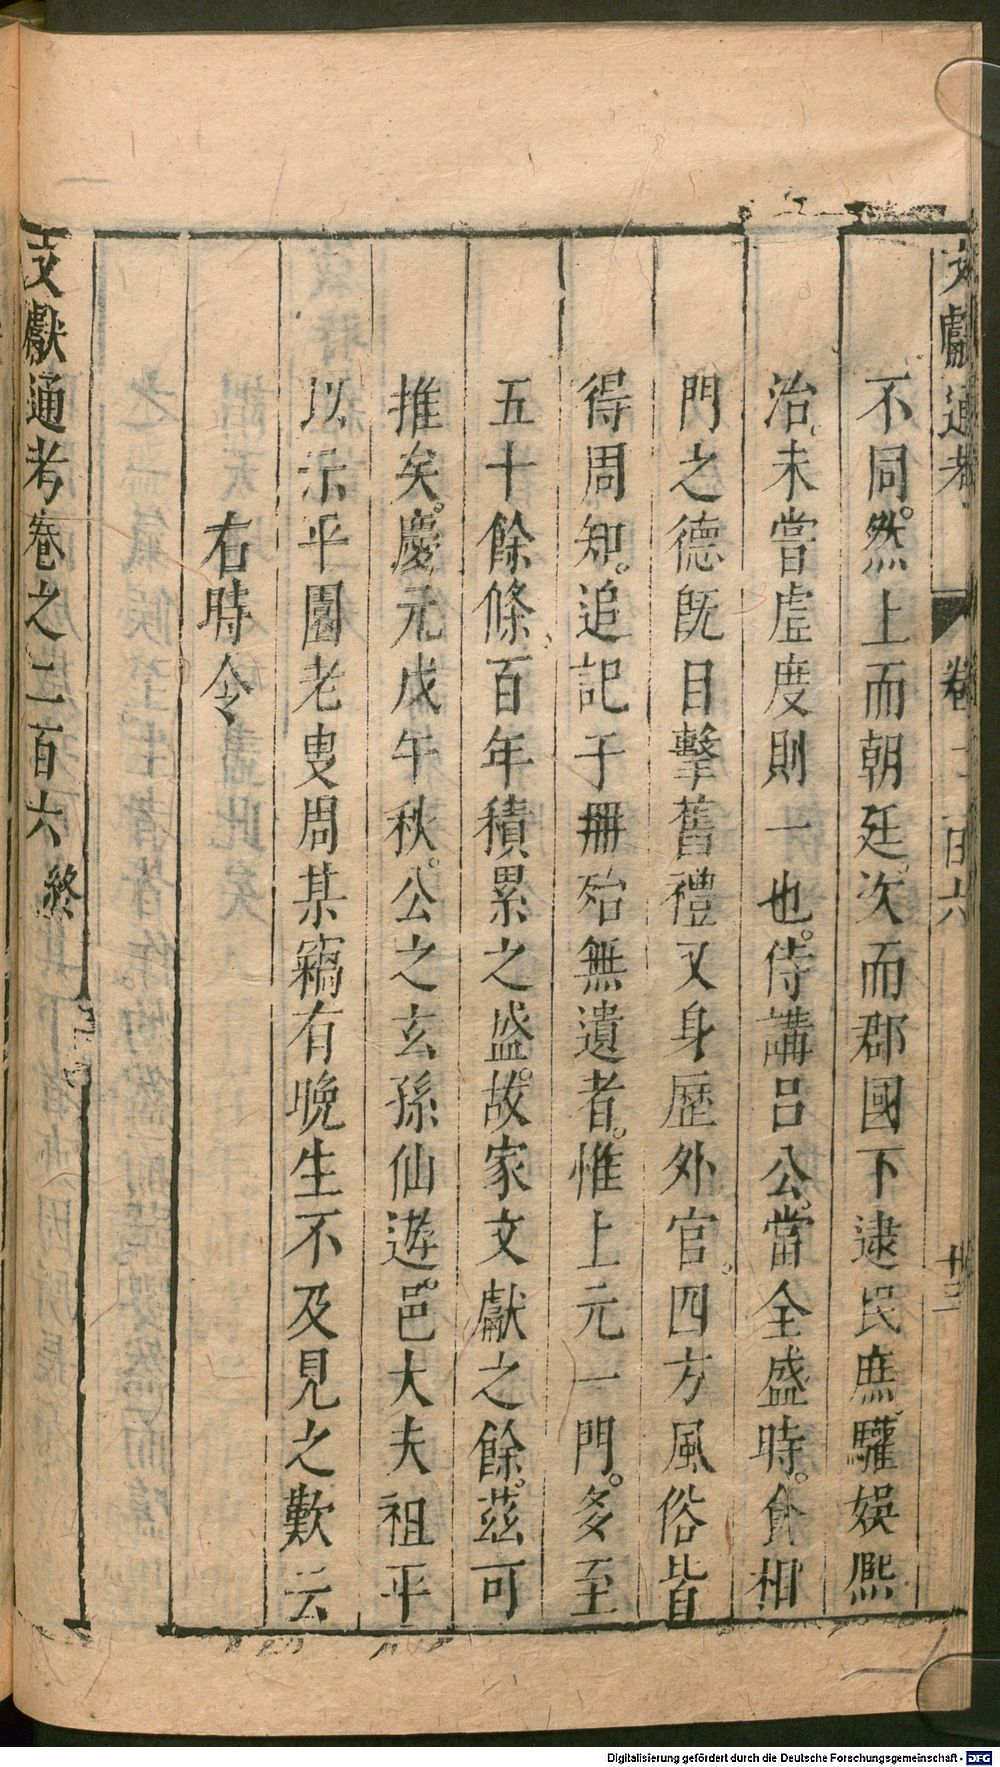 文獻通考 卷二百六 廿三
不同。然上而朝廷。次而郡國下逮民庶。驩娛熈
治。未嘗虗度則一也。侍講呂公。當全盛時。食相
門之德旣目擊舊禮又身歷外官。四方風俗皆
得周知。追記于冊殆無遺者。惟上元一門。多至
五十餘條。百年積累之盛。故家文獻之餘。茲可
推矣。慶元戊午秋。公之玄孫仙遊。邑大夫祖平
以示平園老叟周某竊有晚生不及見之歎云
右時令
文獻通考卷之二百六 終
Digitalisierung gefördert durch die Deutsche Forschungsgemeinschaft - DFG